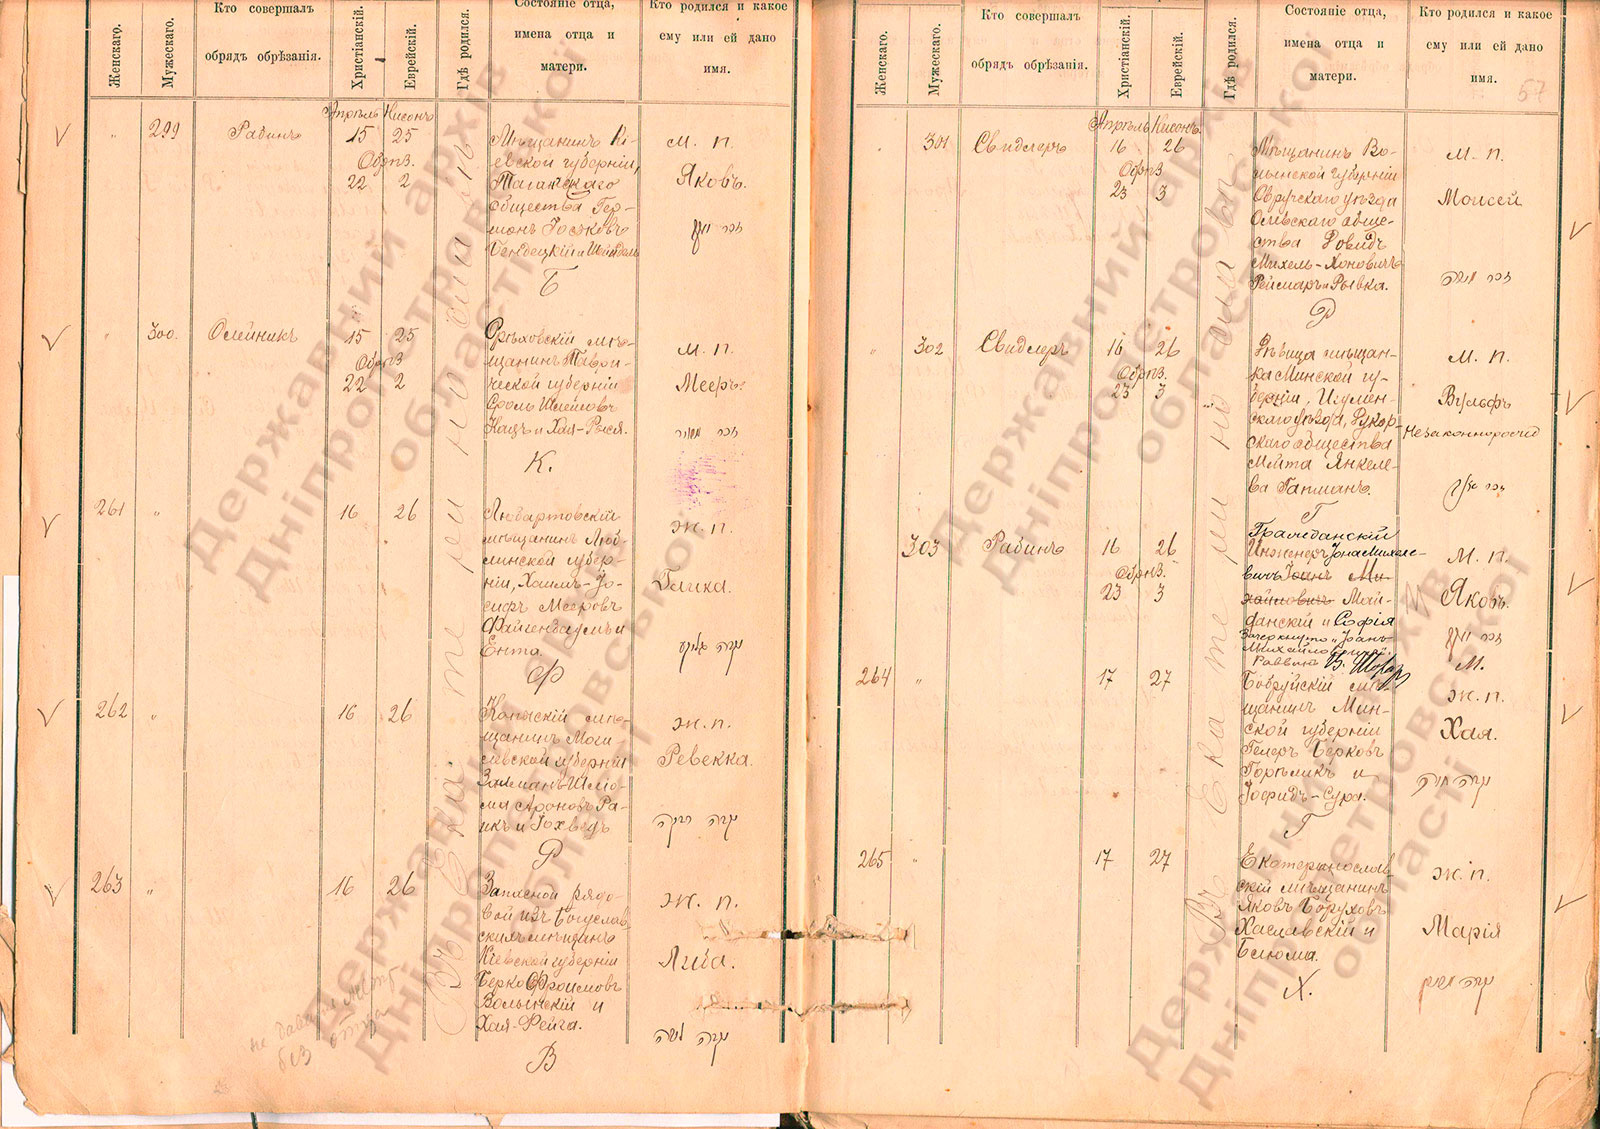 Женскаго.
Мужескаго.
Кто совершалъ
обрядъ обрѣзанія.
Христіанскій.
Еврейскій.
Гдѣ родился.
Состояніе отца,
имена отца и
матери.
Кто родился и какое
ему или ей дано
имя.
Апрѣль Нисонъ
" 299 Рабинъ 15 25
Обрѣз.
22 2
Мѣщанинъ Кі-
евской губерніи,
Таганчскаго
общества Гер-
шонъ Іосяковъ
Бендецкій и Шейндель
Б
м. п.
Яковъ.
" 300. Олейникъ 15 25
Обрѣз
22 2
Орѣховскій мѣ-
щанинъ Таври-
ческой губерніи
Сроль Шлейовъ
Кацъ и Хая-Рися.
К.
м. п.
Мееръ.
261 " 16 26
Любартовскій
мѣщанинъ Люб-
линской губер-
ніи, Хаимъ-Іо-
сифъ Мееровъ
Файгенбаумъ и
Ента.
Ф
ж. п.
262 " 16 26
Копысскій мѣ-
щанинъ Моги-
левской губерніи
Залманъ-Шлио-
ма Ароновъ Ра-
и Іохведъ
Р
ж. п.
Ревекка.
263 " 16 26
Запасной рядо-
вой изъ Богуслав
скихъ мѣщанъ
Кіевской губерніи
Берко Фроимовъ
Волынскій и
Хая-Фейга.
В
ж. п.
Въ Екатеринославѣ
Женскаго.
Мужескаго.
Кто совершалъ
обрядъ обрѣзанія.
Христіанскій.
Еврейскій.
Гдѣ родился.
Состояніе отца,
имена отца и
матери.
Кто родился и какое
ему или ей дано
имя.
57
Апрѣль Нисонъ
301 Свидлеръ 16 26
Обрѣз
23 3
Мѣщанинъ Во-
лынской губерніи
Овручскаго уѣзда
Олевскаго обще-
ства Довидъ
Михель-Хоновичъ
Реймаръ и Рывка.
Р
м. п.
Моисей
" 302 Свидлеръ 16 26
Обрѣз.
23 3
Дѣвица мѣщан-
ка Минской гу-
берніи, Игумен-
скаго уѣзда, Дукор-
скаго общества
Мейта Янкеле-
ва Гапманъ.
Г
м. п.
Вульфъ
незаконнорожд
303 Рабинъ 16 26
Обрѣз.
23 3
Гражданскій
Инженеръ Іона Михеле-
вичъ Іоанъ Ми-
хайловичъ Май-
данскій и Софія
Зачеркнуто "Іоанъ
Михайловичъ".
Раввинъ
М.
м. п.
Яковъ.
264 " 17 27
Бобруйскій мѣ-
щанинъ Мин-
ской губерніи
Гелеръ Берковъ
Горѣликъ и
Іохфидъ-Сура.
Г
ж. п.
Хая.
265 " 17 27
Екатеринослав
скій мѣщанинъ
Яковъ Боруховъ
Хаславскій и
Блюма.
Х.
ж. п.
Марія
Въ Екатеринославѣ
Державний архів
Дніпропетровської
області